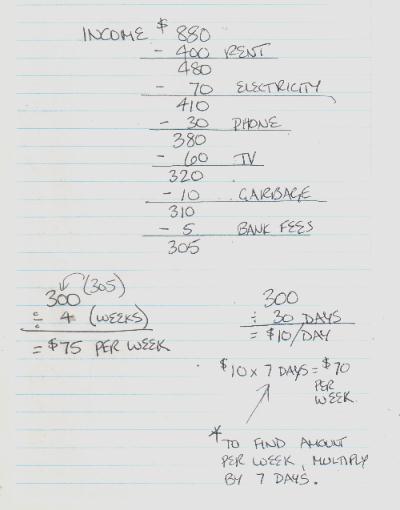 INCOME $ 880
- 400 RENT
480
- 70 ELECTRICITY
410
- 30 PHONE
380
- 60 TV
320
- 10 GARBAGE
310
- 5 BANK FEES
305
(305)
300
÷ 4 (WEEKS)
= $75 PER WEEK
300
÷ 30 DAYS
= $10/DAY
$10 x 7 DAYS = $70
PER
WEEK.
* TO FIND AMOUNT
PER WEEK, MULTIPLY
BY 7 DAYS.